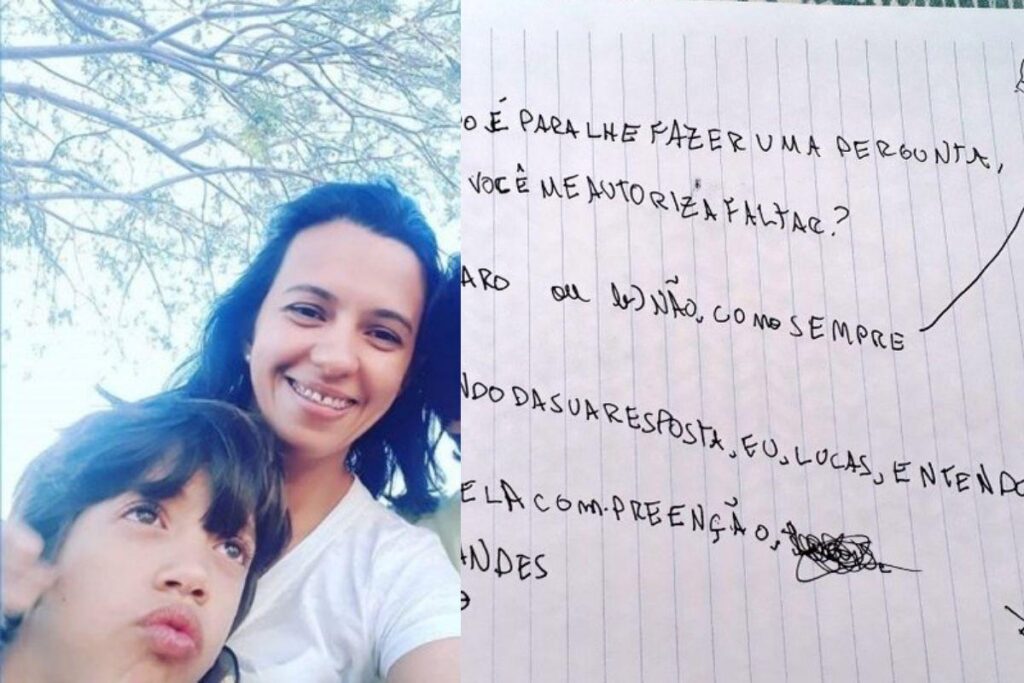 O É PARA LHE FAZER UMA PERGUNTA,
VOCÊ ME AUTORIZA FALTAR?
ARO ou b) NÃO, COMO SEMPRE
NDO DA SUA RESPOSTA, EU, LUCAS, ENTENDO
ELA COM.PREENÇÃO,
ANDES